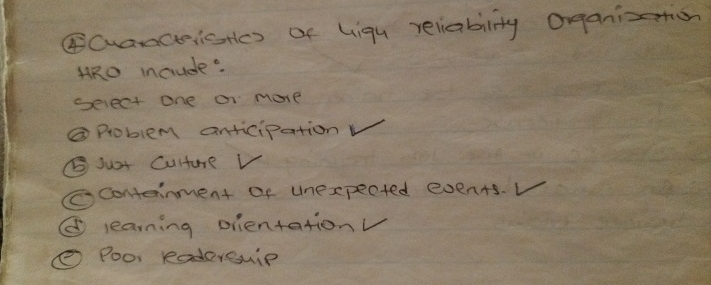 ④ Characteristics of high reliability Organization
HRO include:
Select one or more
ⓐ Problem anticipation ✓
ⓑ Just Culture ✓
ⓒ Containment of unexpected events. ✓
ⓓ learning Orientation ✓
ⓔ Poor leadership